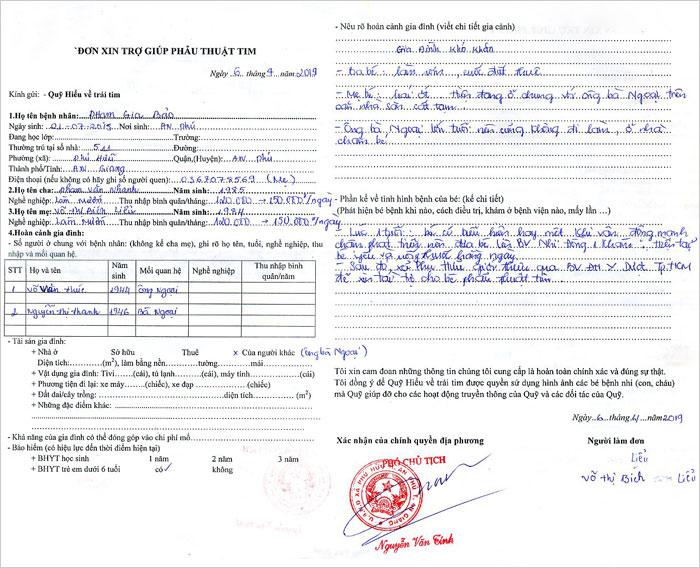 ĐƠN XIN TRỢ GIÚP PHẪU THUẬT TIM
Ngày 6 tháng 4 năm 2019
Kính gửi: - Quỹ Hiểu về trái tim
1.Họ tên bệnh nhân: Phạm Gia Bảo
Ngày sinh: 01-07-2015 Nơi sinh: An Phú
Đang học lớp: Trường:
Thường trú tại số nhà: 511 Đường:
Phường (xã): Phú Hữu Quận,(Huyện): An Phú
Thành phố/Tỉnh: An Giang
Điện thoại (nếu không có hãy ghi số người quen): 0367078569 (Mẹ)
2.Họ tên cha: Phạm Văn Nhanh Năm sinh: 1985
Nghề nghiệp: Làm Mướn Thu nhập bình quân/tháng: 100.000 → 150.000/ngày
3.Họ tên mẹ: Võ Thị Bích Liễu Năm sinh: 1984
Nghề nghiệp: Làm Mướn Thu nhập bình quân/tháng: 100.000 → 150.000/ngày
4.Hoàn cảnh gia đình:
- Số người ở chung với bệnh nhân: (không kể cha mẹ), ghi rõ họ tên, tuổi, nghề nghiệp, thu
nhập và mối quan hệ.
STT Họ và tên Năm sinh Mối quan hệ Nghề nghiệp Thu nhập bình quân/năm
1 Võ Văn Thức 1944 Ông Ngoại
2 Nguyễn Thị Thanh 1946 Bà Ngoại
- Tài sản gia đình:
+ Nhà ở Sở hữu Thuê x Của người khác (ông bà Ngoại)
Diện tích:............(m²), làm bằng nền...........tường.........mái...........
+ Vật dụng gia đình: Tivi.......(cái), tủ lạnh........(cái), máy tính........(cái)
+ Phương tiện đi lại: xe máy.......(chiếc), xe đạp ............(chiếc)
+ Đất đai/cây trồng: ..........................diện tích............ (m²)
+ Những đặc điểm khác: ..............................
- Khả năng của gia đình có thể đóng góp vào chi phí mổ..................
- Bảo hiểm (có hiệu lực đến thời điểm hiện tại)
+ BHYT học sinh 1 năm 2 năm 3 năm
+ BHYT trẻ em dưới 6 tuổi có✓ không
- Nêu rõ hoàn cảnh gia đình (viết chi tiết gia cảnh)
Gia Đình Khó Khăn
- Ba bé: làm mướn, cuốc đất thuê
- Mẹ bé: hái ớt ... hiện đang ở chung với ông bà Ngoại trên
căn nhà sàn cất tạm
- Ông bà Ngoại lớn tuổi nên cũng không đi làm, ở nhà
chăm bé
- Phần kể về tình hình bệnh của bé: (kể chi tiết)
(Phát hiện bé bệnh khi nào, cách điều trị, khám ở bệnh viện nào, mấy lần …)
- Lúc 1 tuổi: bé có biểu hiện hay mệt khi vận động mạnh
chậm phát triển nên đưa bé lên BV Nhi Đồng 1 khám. Hiện tại
bé yếu và uống thuốc hằng ngày.
- Sau đó, xã Phú Hữu giới thiệu qua BV ĐH Y Dược Tp.HCM
để xin tài trợ cho bé phẫu thuật tim.
Tôi xin cam đoan những thông tin chúng tôi cung cấp là hoàn toàn chính xác và đúng sự thật.
Tôi đồng ý để Quỹ Hiểu về trái tim được quyền sử dụng hình ảnh các bé bệnh nhi (con, cháu)
mà Quỹ giúp đỡ cho các hoạt động truyền thông của Quỹ và các đối tác của Quỹ.
Ngày 6 tháng 4 năm 2019
Xác nhận của chính quyền địa phương Người làm đơn
PHÓ CHỦ TỊCH
Liễu
Võ Thị Bích Liễu
Nguyễn Văn Tính